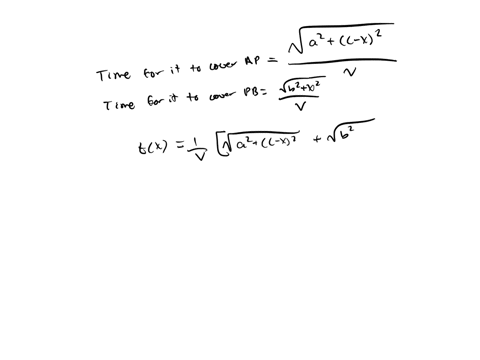 Time for it to cover AP = √(a² + (c-x)²) / v
Time for it to cover PB = √(b²+x²) / v
t(x) = 1/v [√(a²+(c-x)²) + √(b²